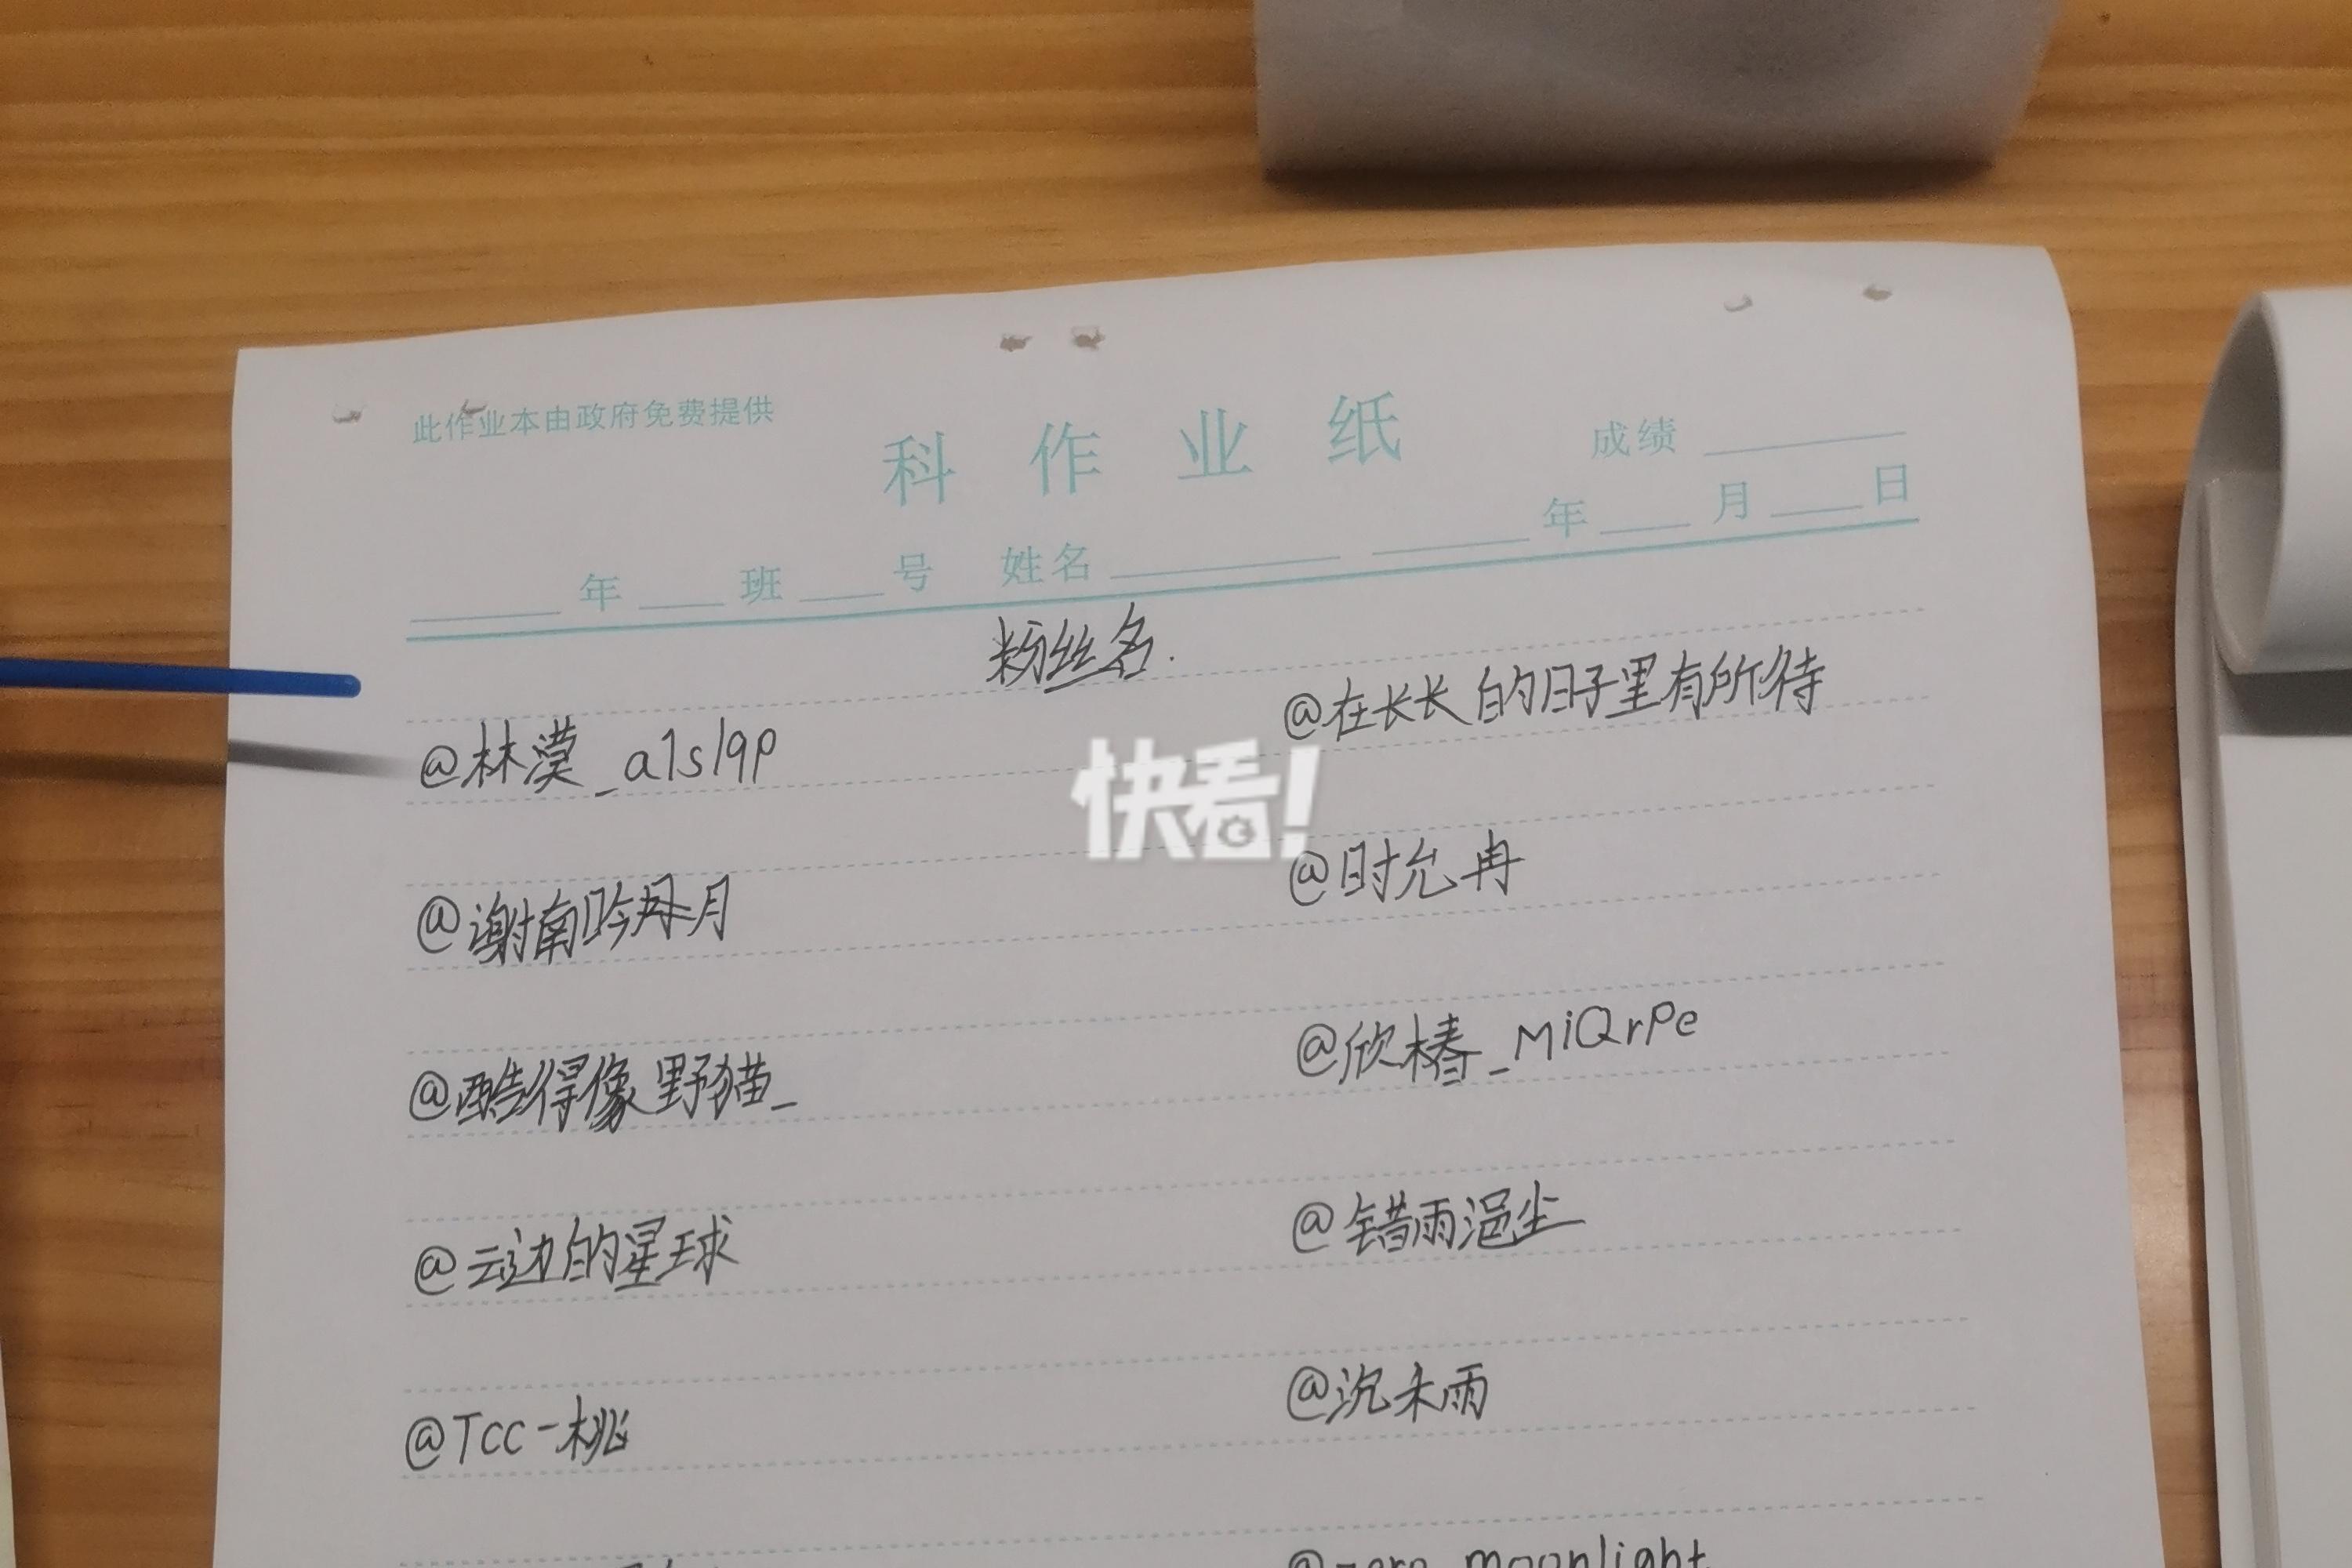 此作业本由政府免费提供
科 作 业 纸
成绩
年 班 号 姓名 年 月 日
粉丝名.
@林漠_a1slqp
@在长长的日子里有所待
快看!
@谢南吟 月
@时允冉
@酷得像野猫_
@欣椿_MiQrPe
@云边的星球
@错雨浥尘
@Tcc-桃
@沉未雨
@zero moonlight